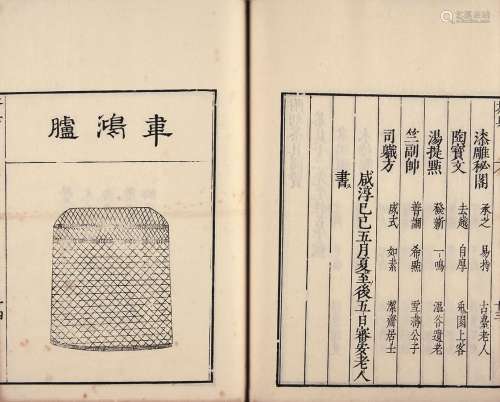 漆雕秘閣 承之 易持 古臺老人
陶寶文 去越 自厚 兔園上客
湯提點 發新 一鳴 溫谷遺老
竺副帥 善調 希點 雪濤公子
司職方 成式 如素 潔齋居士
咸淳己巳五月夏至後五日審安老人
書
韋鴻臚